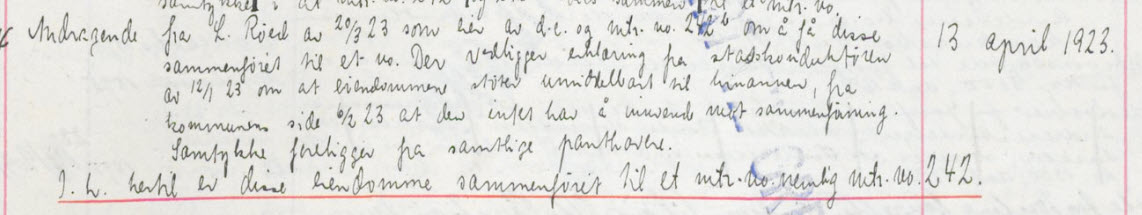 samtykke i at mtr. no. 242 og blir sammenført til et mtr. no.
Andragende fra L. Röed av 20/3 23 som eier av d.e. og mtr. no. 242 b om å få disse 13 april 1923.
sammenføiet til et no. Der vedligger erklæring fra stadskonduktören
av 12/1 23 om at eiendommene stöter umiddelbart til hinannen, fra
kommunens side 6/2 23 at den intet har å innvende mot sammenföining.
Samtykke foreligger fra samtlige panthavere.
I. h. hertil er disse eiendomme sammenföiet til et mtr. no. nemlig mtr. no. 242.